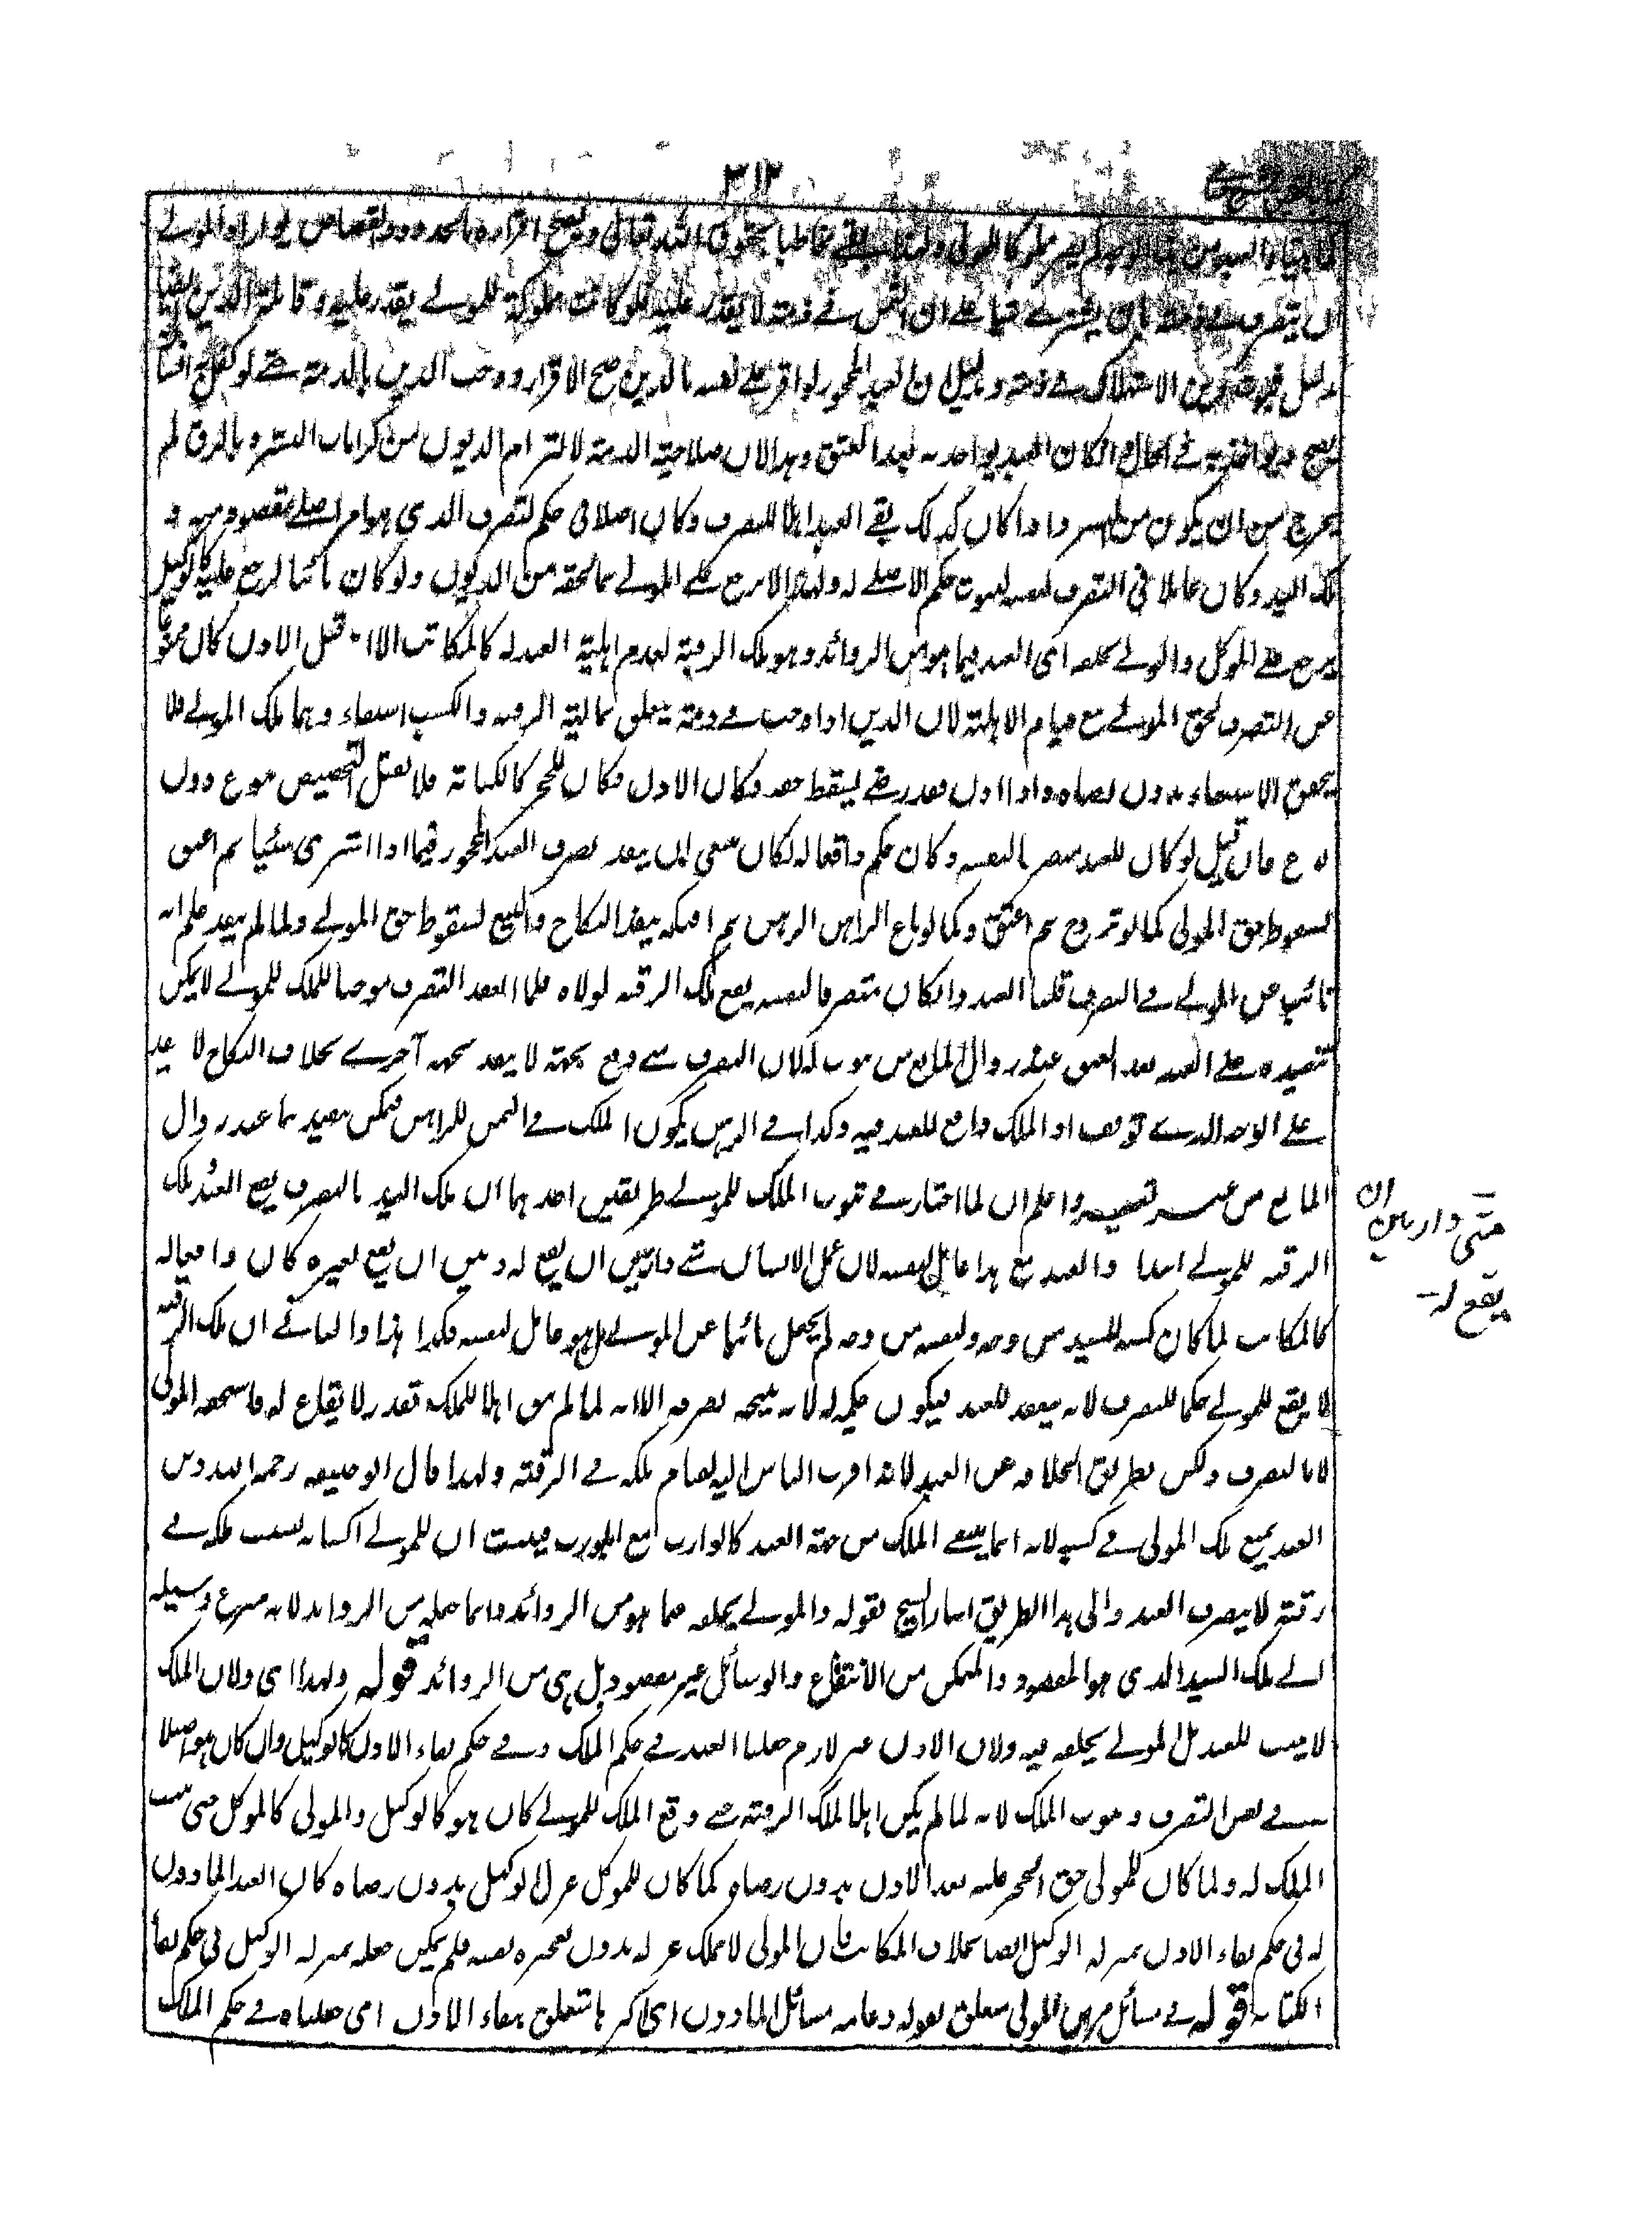 ٣١٢
بحقوق الله تعالى ويصح اقراره بالحدود والقصاص
لا يقدر عليه المولى يقدر عليه
العبد المحجور لو اقر على نفسه بالدين صح الاقرار ووجب الدين بالذمة حتى لو كفل به انسان
يصح ويؤاخذ به في الحال وان كان العبد يؤاخذ به بعد العتق وهذا لان صلاحية الذمة لالتزام الديون من كرامات البشر وبالرق لم
يخرج من ان يكون من البشر واذا كان كذلك بقى العبد اهلا للتصرف وكان اصلا فى حكم التصرف الذى هو امر اصلى مقصود منه و
ملك اليد وكان عاملا فى التصرف لنفسه لثبوت حكم الاصلى له ولهذا لا يرجع على المولى بما لحقه من الديون ولو كان نائبا لرجع عليه كالوكيل
يرجع على الموكل والمولى يخلفه اى العبد فيما هو من الزوائد وهو ملك الرقبة لعدم اهلية العبد له كالمكاتب الا انه قبل الاذن كان ممنوعا
عن التصرف لحق المولى مع قيام الاهلية لان الدين اذا وجب فى ذمته يتعلق بمالية الرقبة والكسب استيفاء وهما ملك المولى فلا
يتحقق الاستيفاء بدون رضاه واذا اذن فقد رضى بسقوط حقه فكان الاذن فكا للحجر كالكتابة فلا يقبل التخصيص بنوع دون
نوع فان قيل لو كان العبد متصرفا لنفسه وكان حكمه واقعا له لكان ينبغى ان ينفذ تصرف العبد المحجور فيما اذا اشترى شيئا ثم اعتق
لسقوط حق المولى كما لو تزوج ثم اعتق وكما لو باع الراهن الرهن ثم افتكه ينفذ النكاح والبيع لسقوط حق المولى ولما لم ينفذ علم انه
نائب عن المولى فى التصرف قلنا العبد وان كان متصرفا لنفسه يقع ملك الرقبة لمولاه فلما انعقد التصرف موجبا للملك للمولى لا يمكن
تنفيذه على العبد بعد العتق عند زوال المانع من ثبوته له لان التصرف متى وقع بجهة لا ينفذ بجهة اخرى بخلاف النكاح لانه ينفذ
على الوجه الذى توقف اذ الملك واقع للعبد فيه وكذا فى الرهن يكون الملك فى الثمن للراهن فيمكن تنفيذهما عند زوال
المانع من غير تغيير واعلم ان لنا اختار فى ثبوت الملك للمولى طريقين احدهما ان ملك اليد بالتصرف يقع للعبد وملك
الرقبة للمولى ابتداء والعبد مع هذا عامل لنفسه لان عمل الانسان متى دار بين ان يقع له وبين ان يقع لغيره كان واقعا له
متى دار بين ان
يقع له
كالمكاتب لما كان كسبه للسيد من وجه ولنفسه من وجه لم يجعل نائبا عن المولى بل هو عامل لنفسه فكذا هذا والثانى ان ملك الرقبة
لا يقع للمولى حكما للتصرف لانه ينعقد للعبد فيكون حكمه له لانه نتيجة تصرفه الا انه لما لم يكن اهلا للملك تعذر الايقاع له فاستحقه المولى
لا بالتصرف ولكن بطريق الخلافة عن العبد لانه اقرب الناس اليه لقيام ملكه فى الرقبة ولهذا قال ابو حنيفة رحمه الله دين
العبد يمنع ملك المولى فى كسبه لانه انما يتلقى الملك من جهة العبد كالوارث مع المورث فيثبت ان للمولى اكسابه بسبب ملكه فى
رقبته لا بتصرف العبد والى هذا الطريق اشار الشيخ بقوله والمولى يخلفه فيما هو من الزوائد وانما جعله من الزوائد لانه شرع وسيلة
الى ملك اليد الذى هو المقصود والتمكن من الانتفاع والوسائل غير مقصودة بل هى من الزوائد قوله ولهذا اى ولان الملك
لا يثبت للعبد بل المولى يخلفه فيه ولان الاذن غير لازم جعلنا العبد فى حكم الملك وفى حكم بقاء الاذن كالوكيل وان كان هو اصلا
فى نفس التصرف وثبوت الملك لانه لما لم يكن اهلا لملك الرقبة حتى وقع الملك للمولى كان هو كالوكيل والمولى كالموكل حتى يثبت
الملك له ولما كان للمولى حق الحجر عليه بعد الاذن بدون رضاه كما كان للموكل عزل الوكيل بدون رضاه كان العبد الماذون
له فى حكم بقاء الاذن بمنزلة الوكيل ايضا بخلاف المكاتب فان المولى لا يملك عزله بدون تعجيزه نفسه فلم يمكن جعله بمنزلة الوكيل فى حكم بقاء
الكتابة قوله فى مسائل مرض المولى متعلق بقوله وعامة مسائل الماذون اى اكثرها متعلق ببقاء الاذن اى جعلناه فى حكم الملك